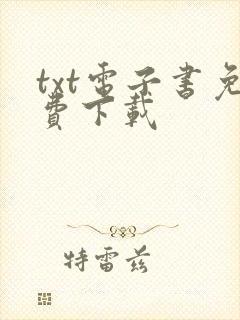 txt電子書免
費下載
特雷茲